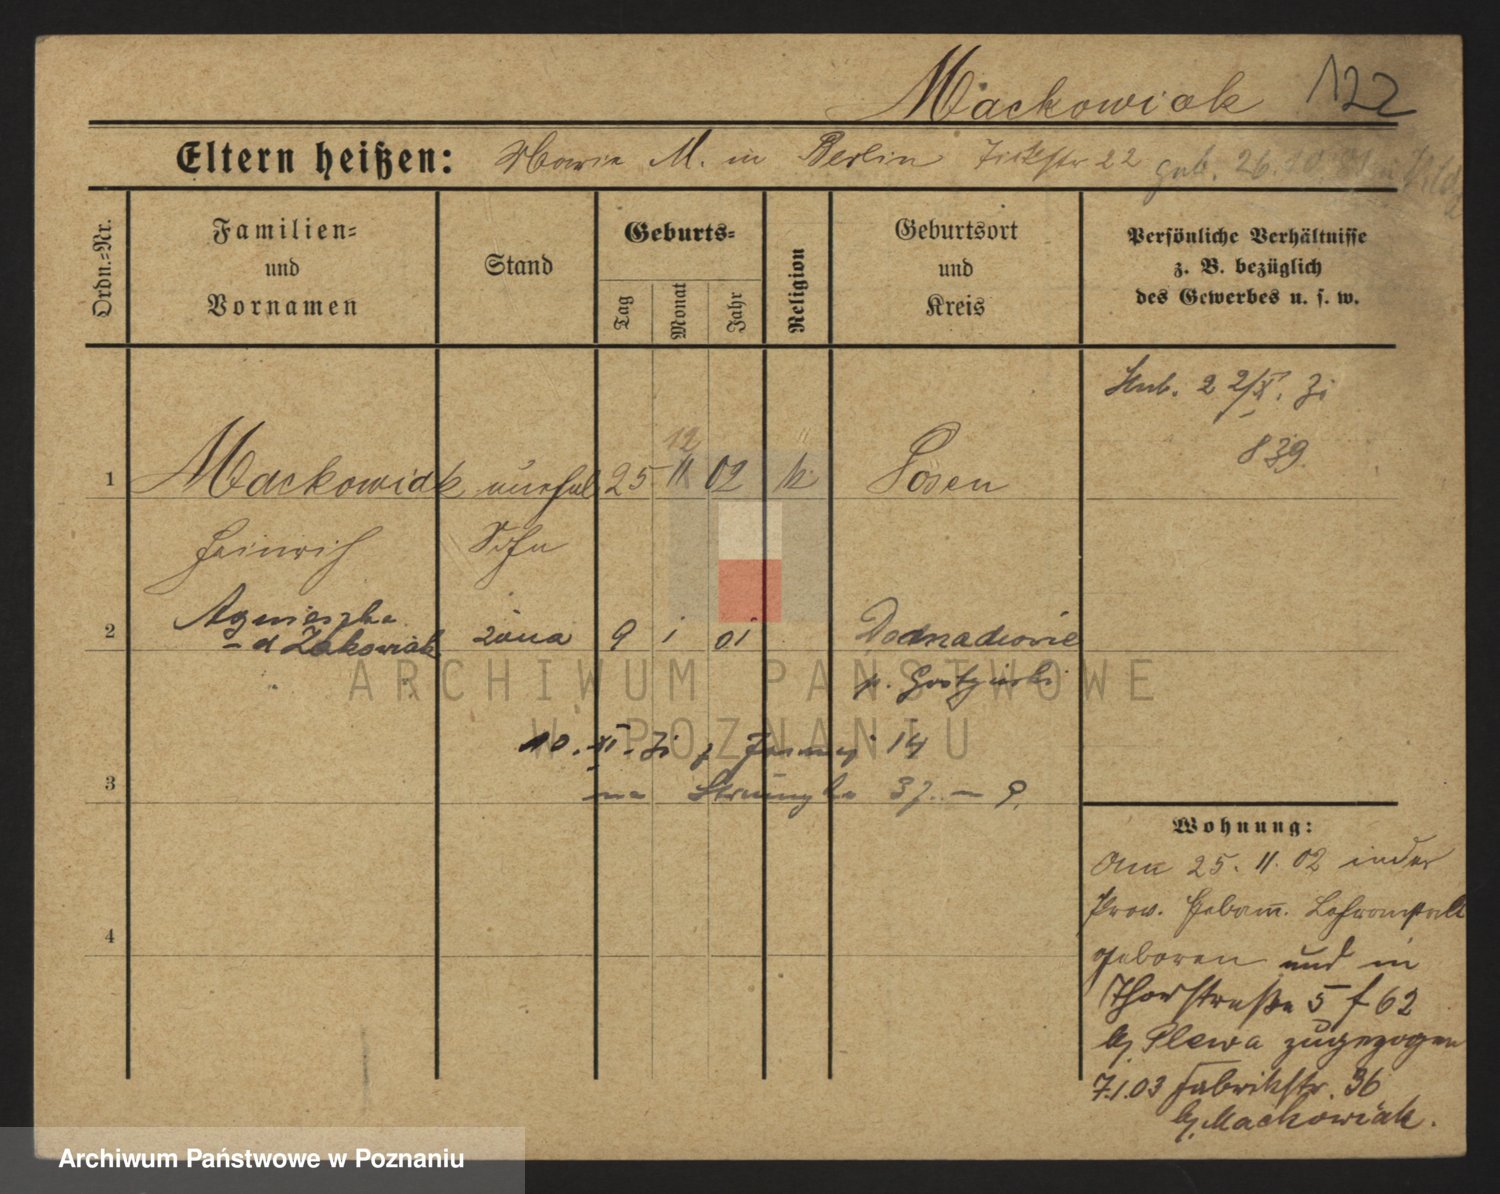 Mackowiak 122
Eltern heißen: Maria M. in Berlin 22 geb. 26.10.
Ordn.-Nr.
Familien-
und
Vornamen
Stand
Geburts-
Tag
Monat
Jahr
Religion
Geburtsort
und
Kreis
Persönliche Verhältnisse
z. B. bezüglich
des Gewerbes u. s. w.
839
12
1 Mackowiak unehel 25 11 02 k. Posen
Heinrich Sohn
2 Agnieszka
żona 9 1 01
p. Gostyński
10. XI. 14
3 na 37. — 9.
4
Wohnung:
Am 25. 11. 02 in der
Prov. Hebam. Lehranstalt
geboren und in
Thorstraße 5 f 62
bj. Plewa zugezogen
7.1.03 Fabrikstr. 36
bj. Mackowiak.
ARCHIWUM PAŃSTWOWE
W POZNANIU
Archiwum Państwowe w Poznaniu